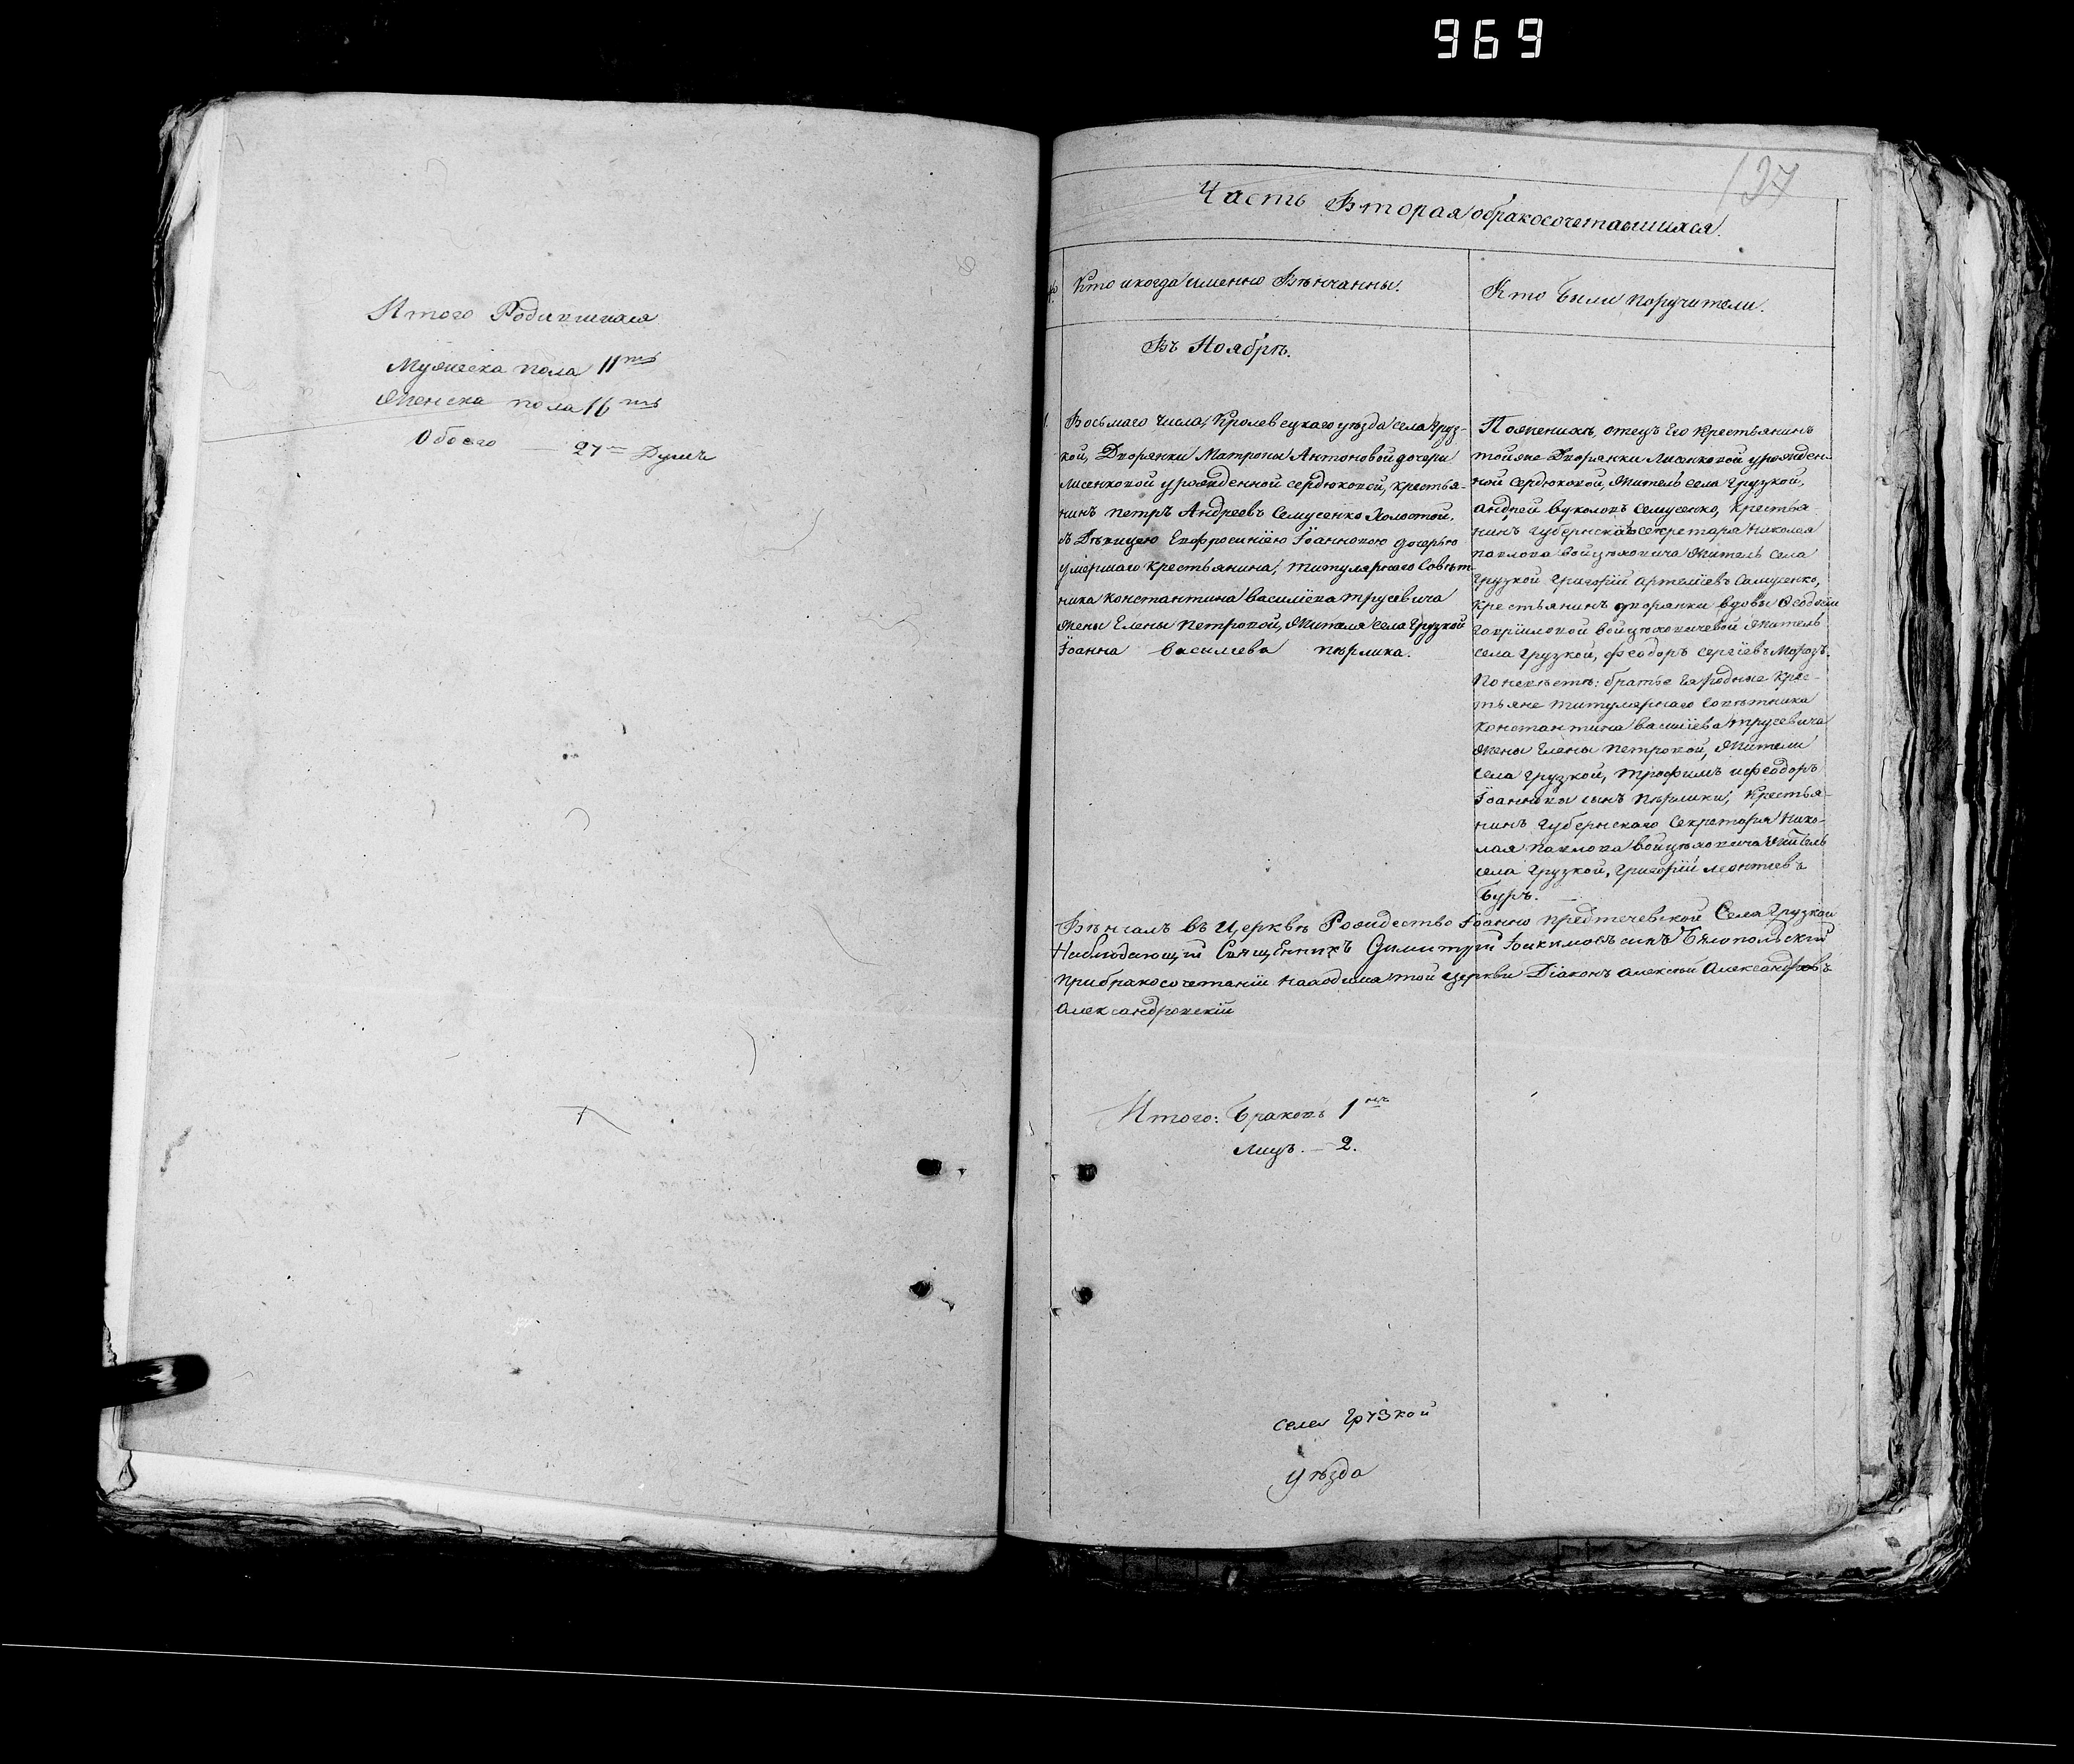 969
Итого Родившихся
Мужеска пола 11ть
Женска пола 16ть
Обоего — 27 Душъ
127
Часть Вторая обракосочетавшихся.
Кто и когда именно Вѣнчанны.
Кто были поручители.
Въ Ноябрѣ.
1. Восьмаго числа, Кролевецкаго уѣзда села Груз-
кой, Дворянки Матроны Антоновой дочери
Лисенковой урожденной сердюковой, крестья-
нинъ петръ Андреевъ Семусенко Холостой.
съ Дѣвицею Евфросинїею Іоанновою дочерью
умершаго крестьянина, титулярнаго Совѣт-
ника константина василїева трусевича
жены Елены петровой, жителя села Грузкой
Іоанна василїева пѣрлика.
По женихѣ, отецъ Его крестьянинъ
тойже Дворянки Лисенковой урожден-
ной сердюковой, житель села Грузкой,
андрей вуколовъ семусенко, крестья
нинъ губернскаго секретаря Николая
павлова войцѣховича житель села
Грузкой григорїй артемїевъ Самусенко,
крестьянинъ дворянки вдовы Феодосїи
гаврїиловой войцѣховичевой житель
села грузкой, феодоръ сергїевъ Морозъ.
По невѣстѣ: братье Ея родные крес-
тьяне титулярнаго совѣтника
константина василїева трусевича
жены Елены петровой, жители
села Грузкой, трофимъ и феодоръ
Іоанновы сынъ пѣрлики, крестья-
нинъ губернскаго секретаря Нико-
лая павлова войцѣховича житель
села Грузкой, григорїй леонтїевъ
Буръ.
Вѣнчалъ въ Церквѣ Рождество Іоанно предтечевской Села Грузкой
Наблюдающїй Священникъ Димитрїй Іоакимовъ сынъ Бѣлопольскїй
при бракосочетанїи находился той церкви Дїаконъ алексѣй Александровъ
александровскїй
Итого: Браковъ 1нъ
Лицъ. — 2.
села Грузкой
уѣзда